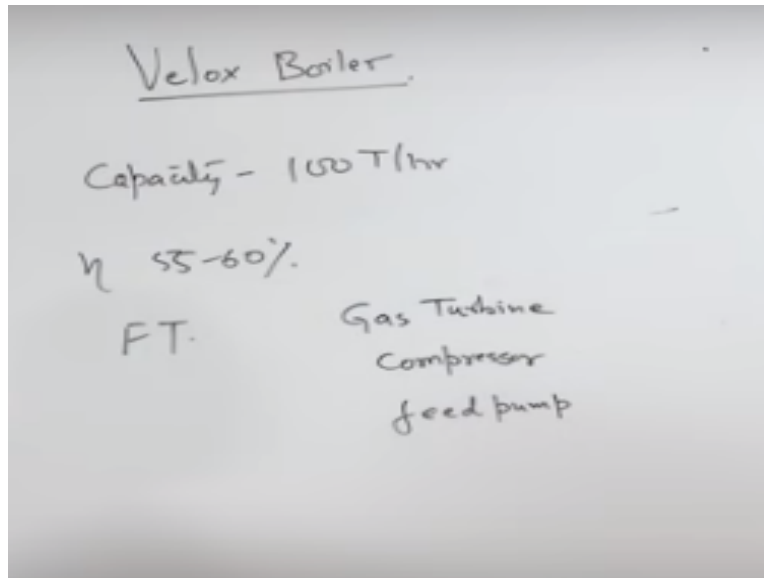 Velox Boiler.
Capacity - 100 T/hr
η 55-60%.
FT.
Gas Turbine
Compressor
feed pump